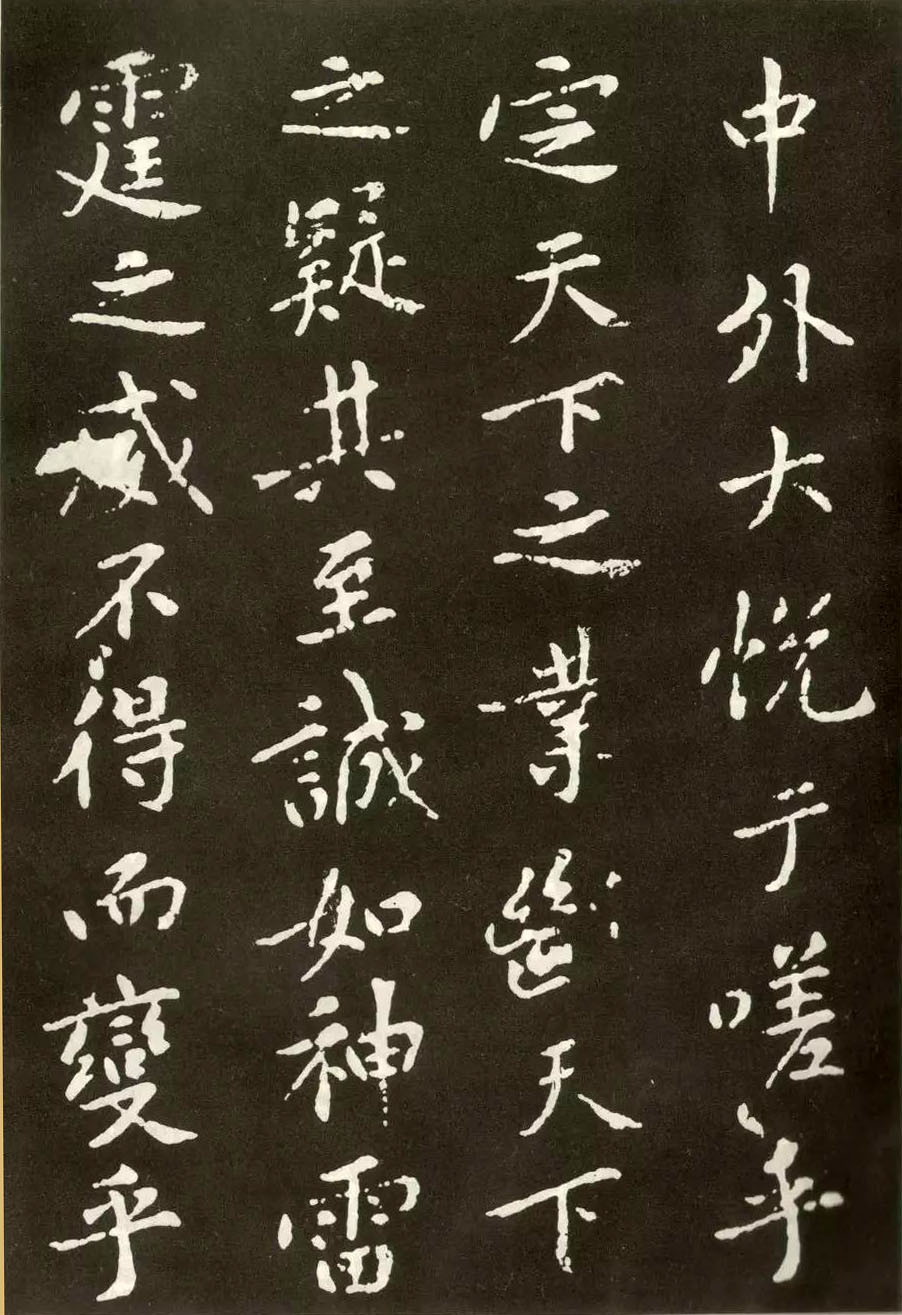 中外大悦于嗟乎
定天下之業斷天下
之疑其至誠如神雷
霆之威不得而變乎